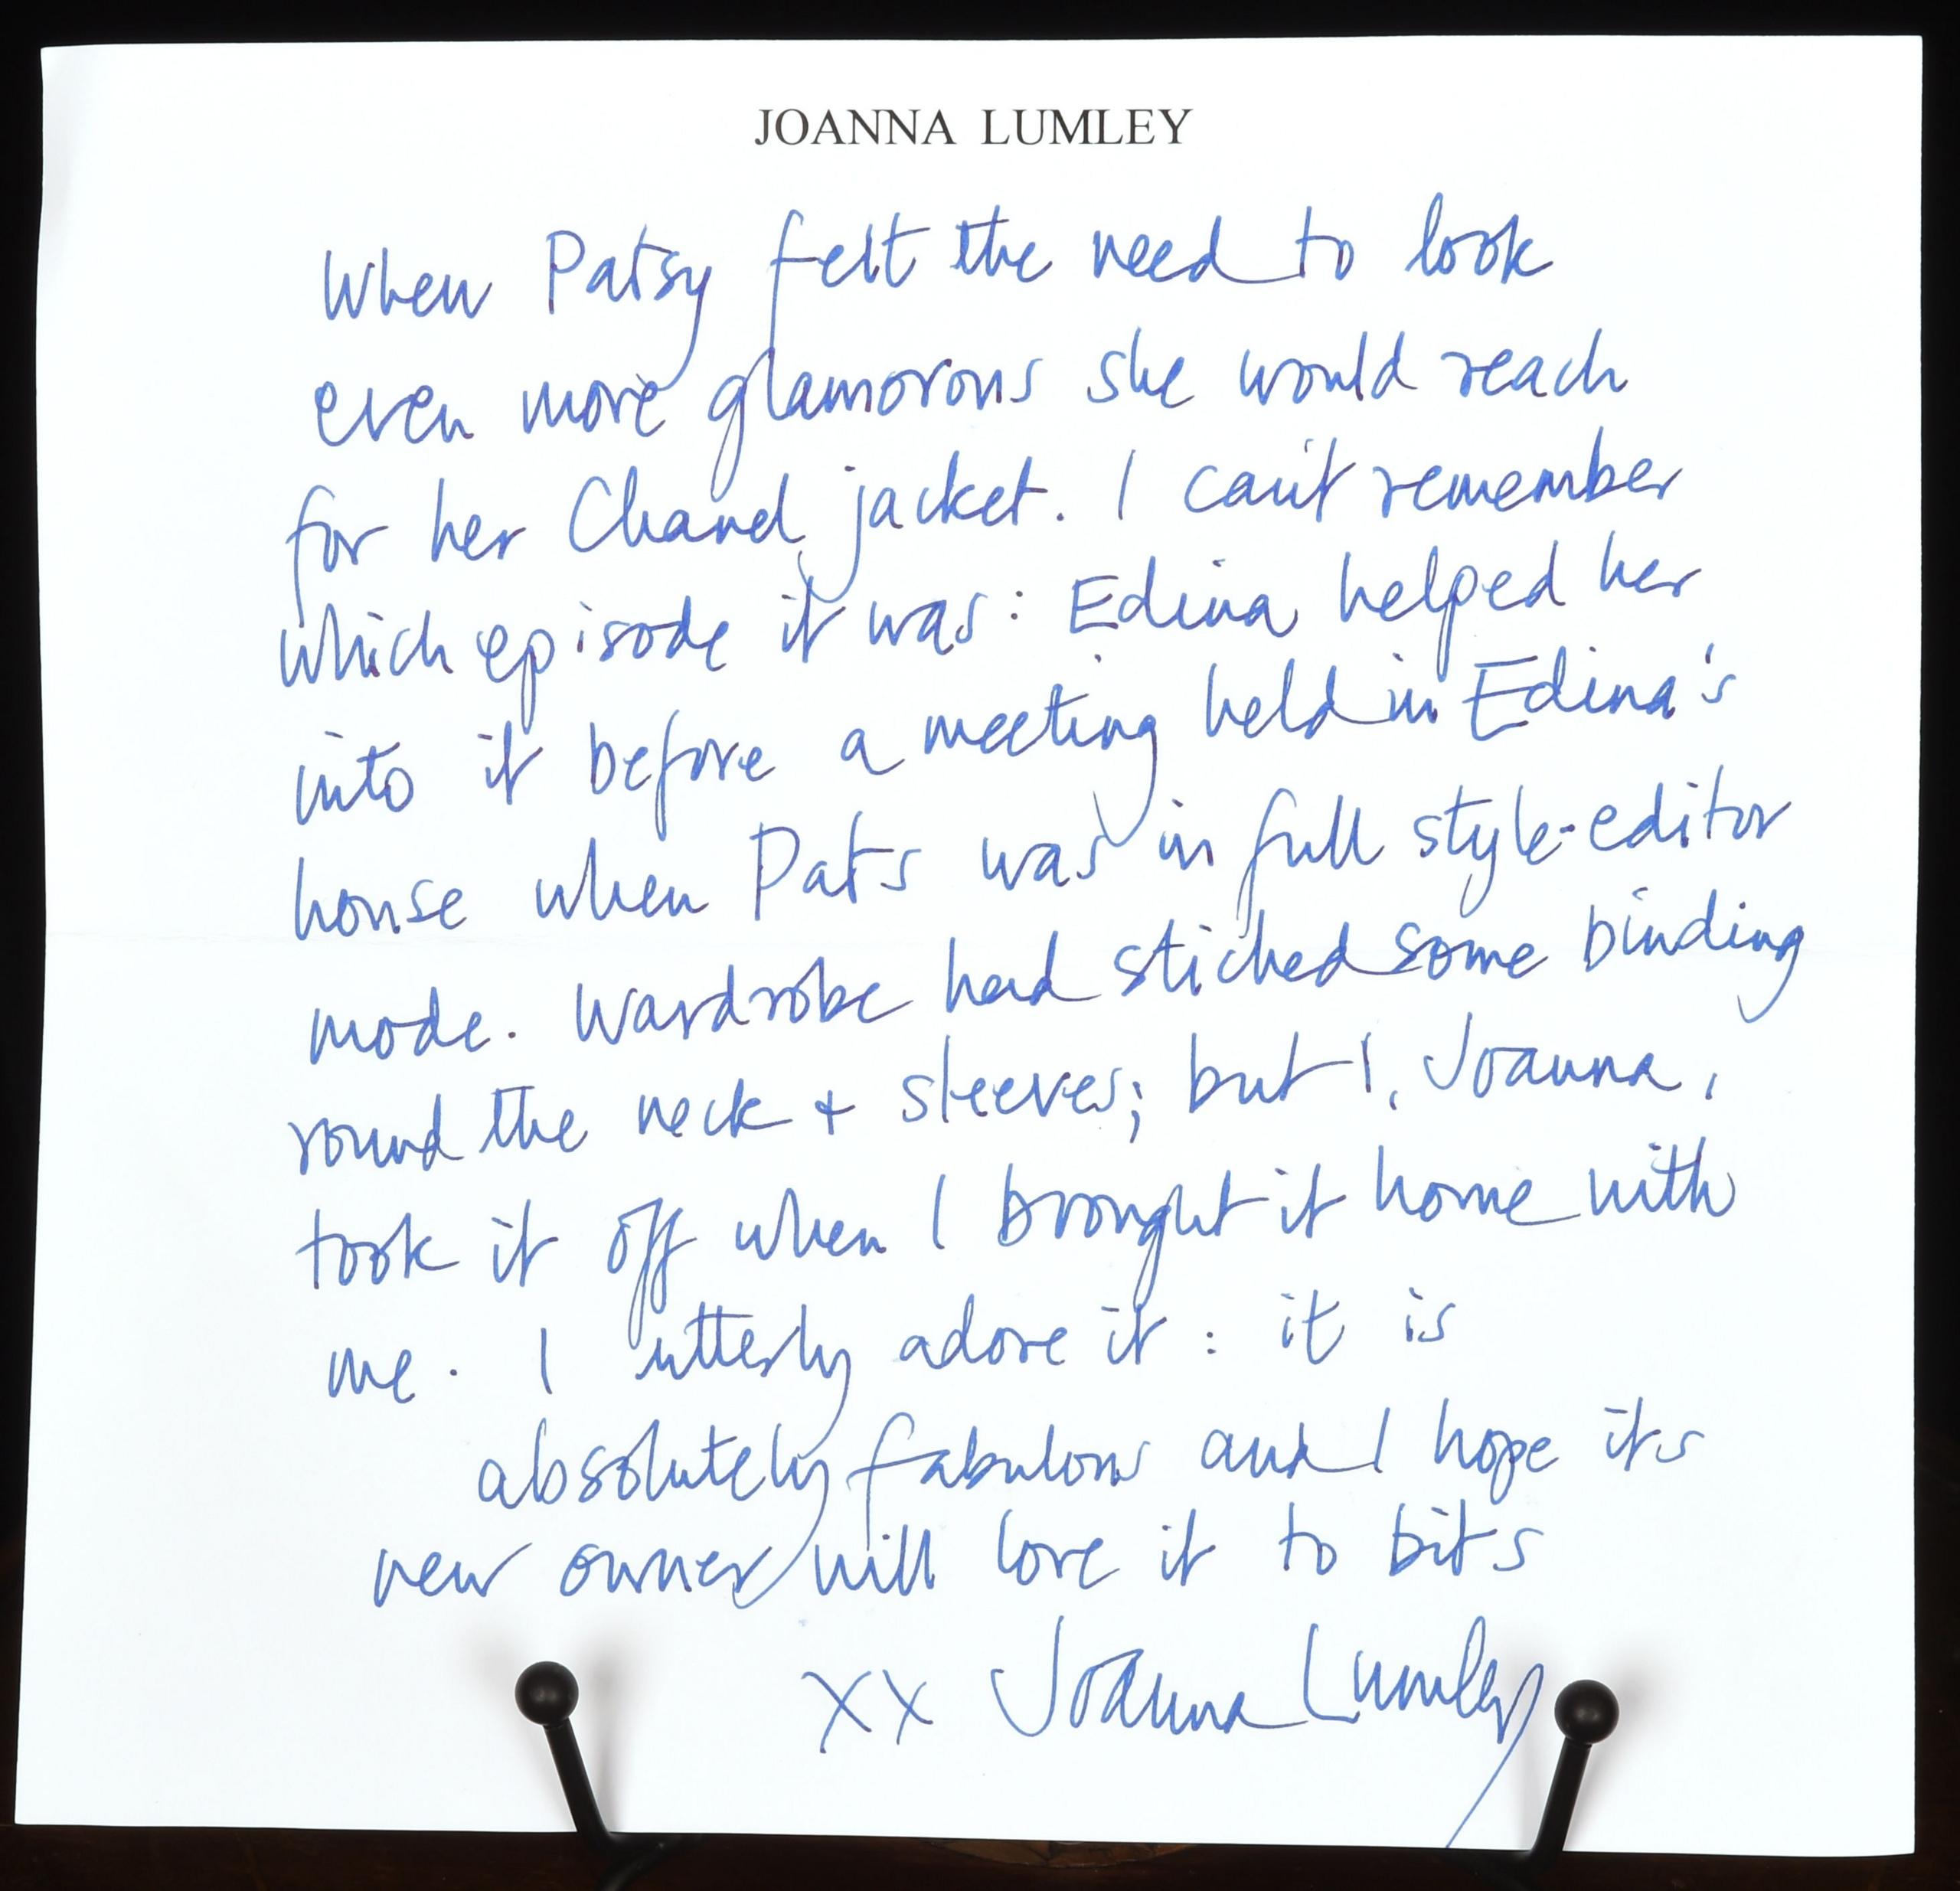 JOANNA LUMLEY
When Patsy felt the need to look
even more glamorous she would reach
for her Chanel jacket. I can't remember
which episode it was: Edina helped her
into it before a meeting held in Edina's
house when Pats was in full style-editor
mode. Wardrobe had stiched some binding
round the neck + sleeves; but I, Joanna,
took it off when I brought it home with
me. I utterly adore it: it is
absolutely fabulous and I hope its
new owner will love it to bits
xx Joanna Lumley